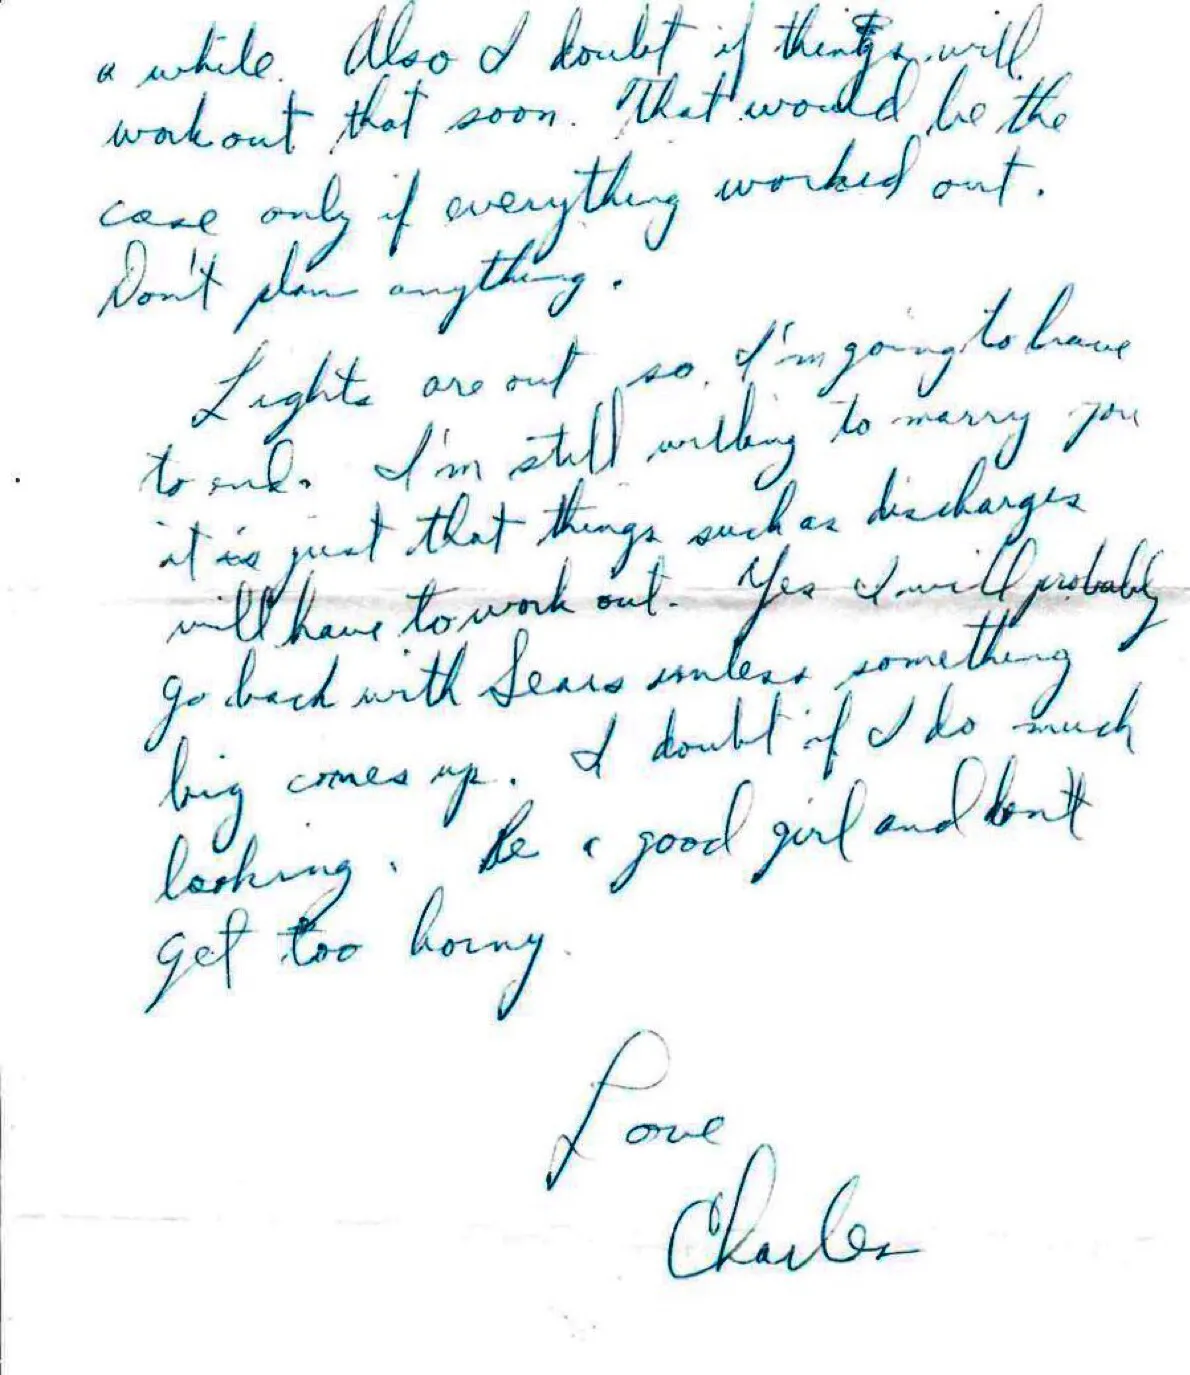 a while. Also I doubt if things will
work out that soon. That would be the
case only if everything worked out.
Don't plan anything.
Lights are out so I'm going to have
to end. I'm still willing to marry you
it is just that things such as discharges
will have to work out. Yes I will probably
go back with Sears unless something
big comes up. I doubt if I do much
looking. Be a good girl and don't
get too horny.
Love
Charles